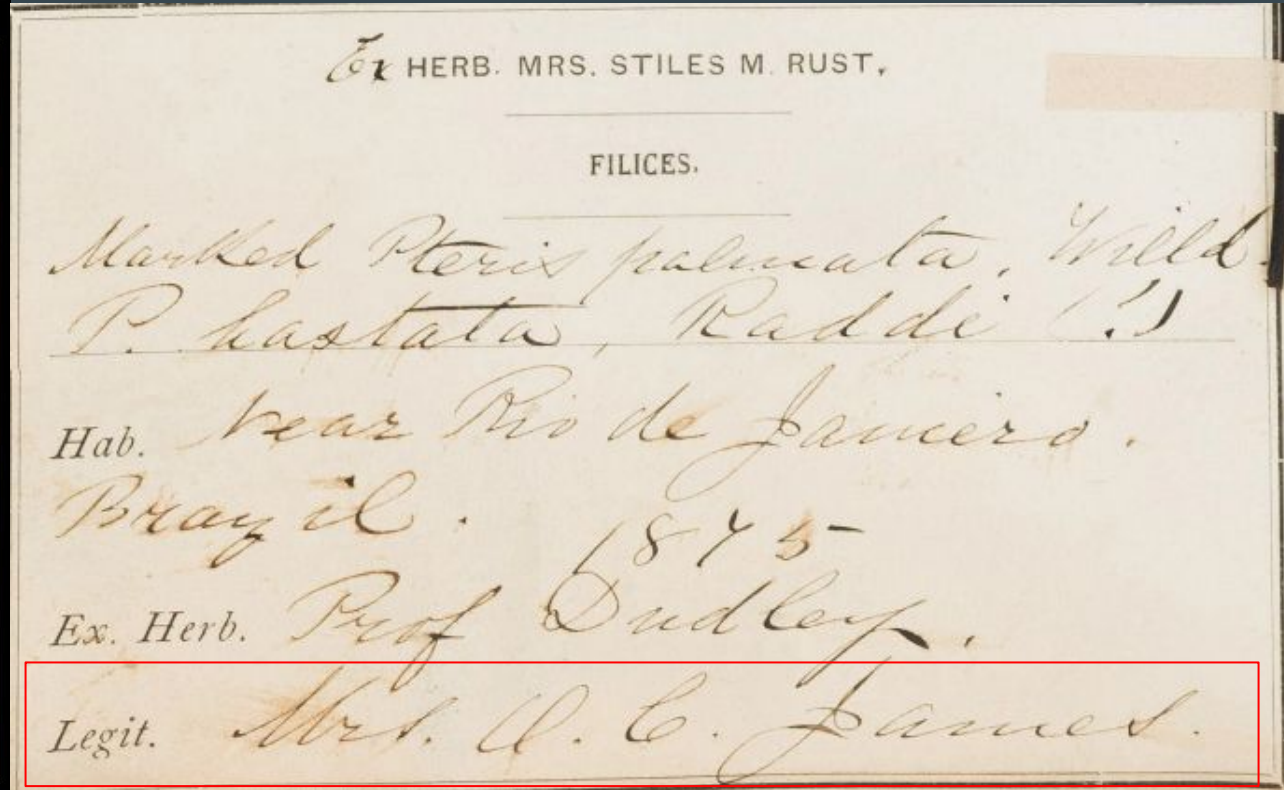 Ex HERB. MRS. STILES M. RUST.
FILICES.
Marked Pteris palmata, Willd.
P. hastata, Raddi (!)
Hab. Near Rio de Janiero.
Brazil.
1875
Ex. Herb. Prof Dudley.
Legit. Mrs. O. C. James.